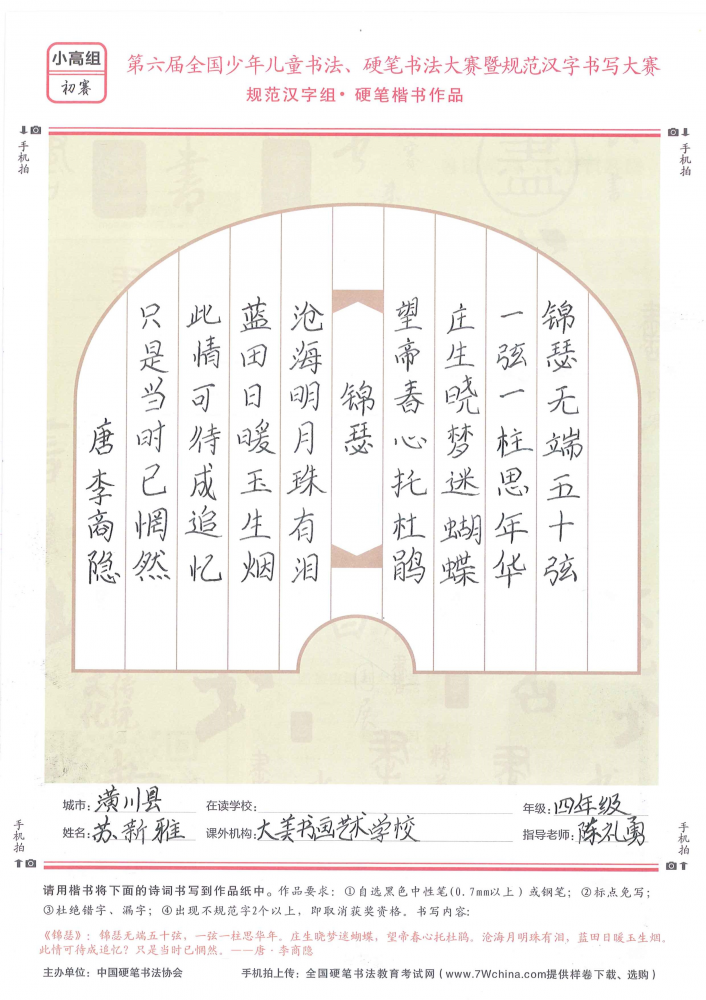 小高组
初赛
第六届全国少年儿童书法、硬笔书法大赛暨规范汉字书写大赛
规范汉字组·硬笔楷书作品
手机拍
手机拍
锦瑟无端五十弦
一弦一柱思年华
庄生晓梦迷蝴蝶
望帝春心托杜鹃
锦瑟
沧海明月珠有泪
蓝田日暖玉生烟
此情可待成追忆
只是当时已惘然
唐李商隐
城市：潢川县 在读学校： 年级：四年级
姓名：苏新雅 课外机构：大美书画艺术学校 指导老师：陈礼勇
手机拍
手机拍
请用楷书将下面的诗词书写到作品纸中。作品要求：①自选黑色中性笔(0.7mm以上)或钢笔；②标点免写；
③杜绝错字、漏字；④出现不规范字2个以上，即取消获奖资格。书写内容：
《锦瑟》：锦瑟无端五十弦，一弦一柱思华年。庄生晓梦迷蝴蝶，望帝春心托杜鹃。沧海月明珠有泪，蓝田日暖玉生烟。
此情可待成追忆？只是当时已惘然。——唐·李商隐
主办单位：中国硬笔书法协会 手机拍上传：全国硬笔书法教育考试网（www.7Wchina.com提供样卷下载、选购）